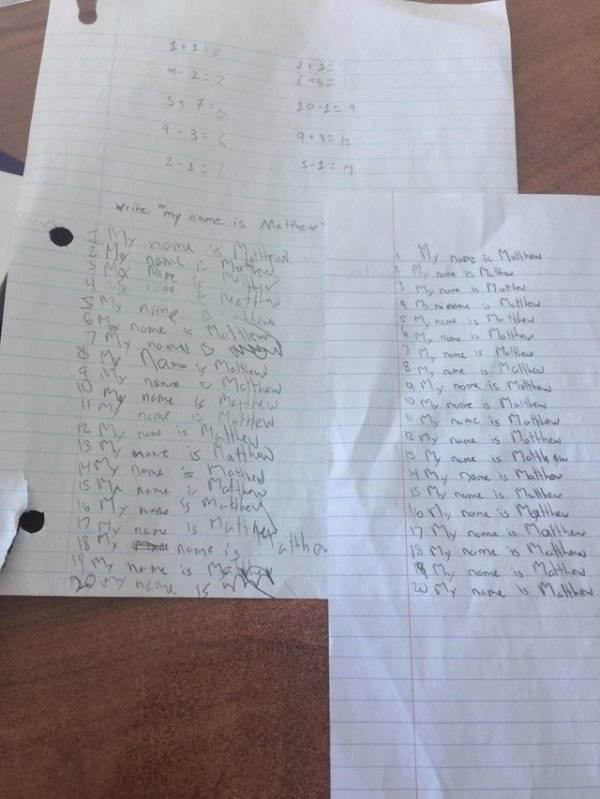 1+1=2
4-2=2
5+7=
9-3=6
2-1=1
2+1=
6+5=
10-1=9
9+3=12
5-1=4
write "my name is Mathew"
1 My name is Matthew
2 My name is Matthew
3 My name is Matthew
4 My name is Matthew
5 My name is Matthew
6 My name is Matthew
7 My name is
8 My Name is Matthew
9 My name is Matthew
10 My name is Matthew
11 My name is Matthew
12 My name is Matthew
13 My name is Matthew
14 My name is Matthew
15 My name is Matthew
16 My name is Matthew
17 My name is Matthew
18 My name is Matthew
19 My name is
20 My name is
1 My name is Matthew
2 My name is Matthew
3 My name is Matthew
4 My name is Matthew
5 My name is Matthew
6 My name is Matthew
7 My name is Matthew
8 My name is Matthew
9 My name is Matthew
10 My name is Matthew
11 My name is Matthew
12 My name is Matthew
13 My name is Matthew
14 My name is Matthew
15 My name is Matthew
16 My name is Matthew
17 My name is Matthew
18 My name is Matthew
19 My name is Matthew
20 My name is Matthew